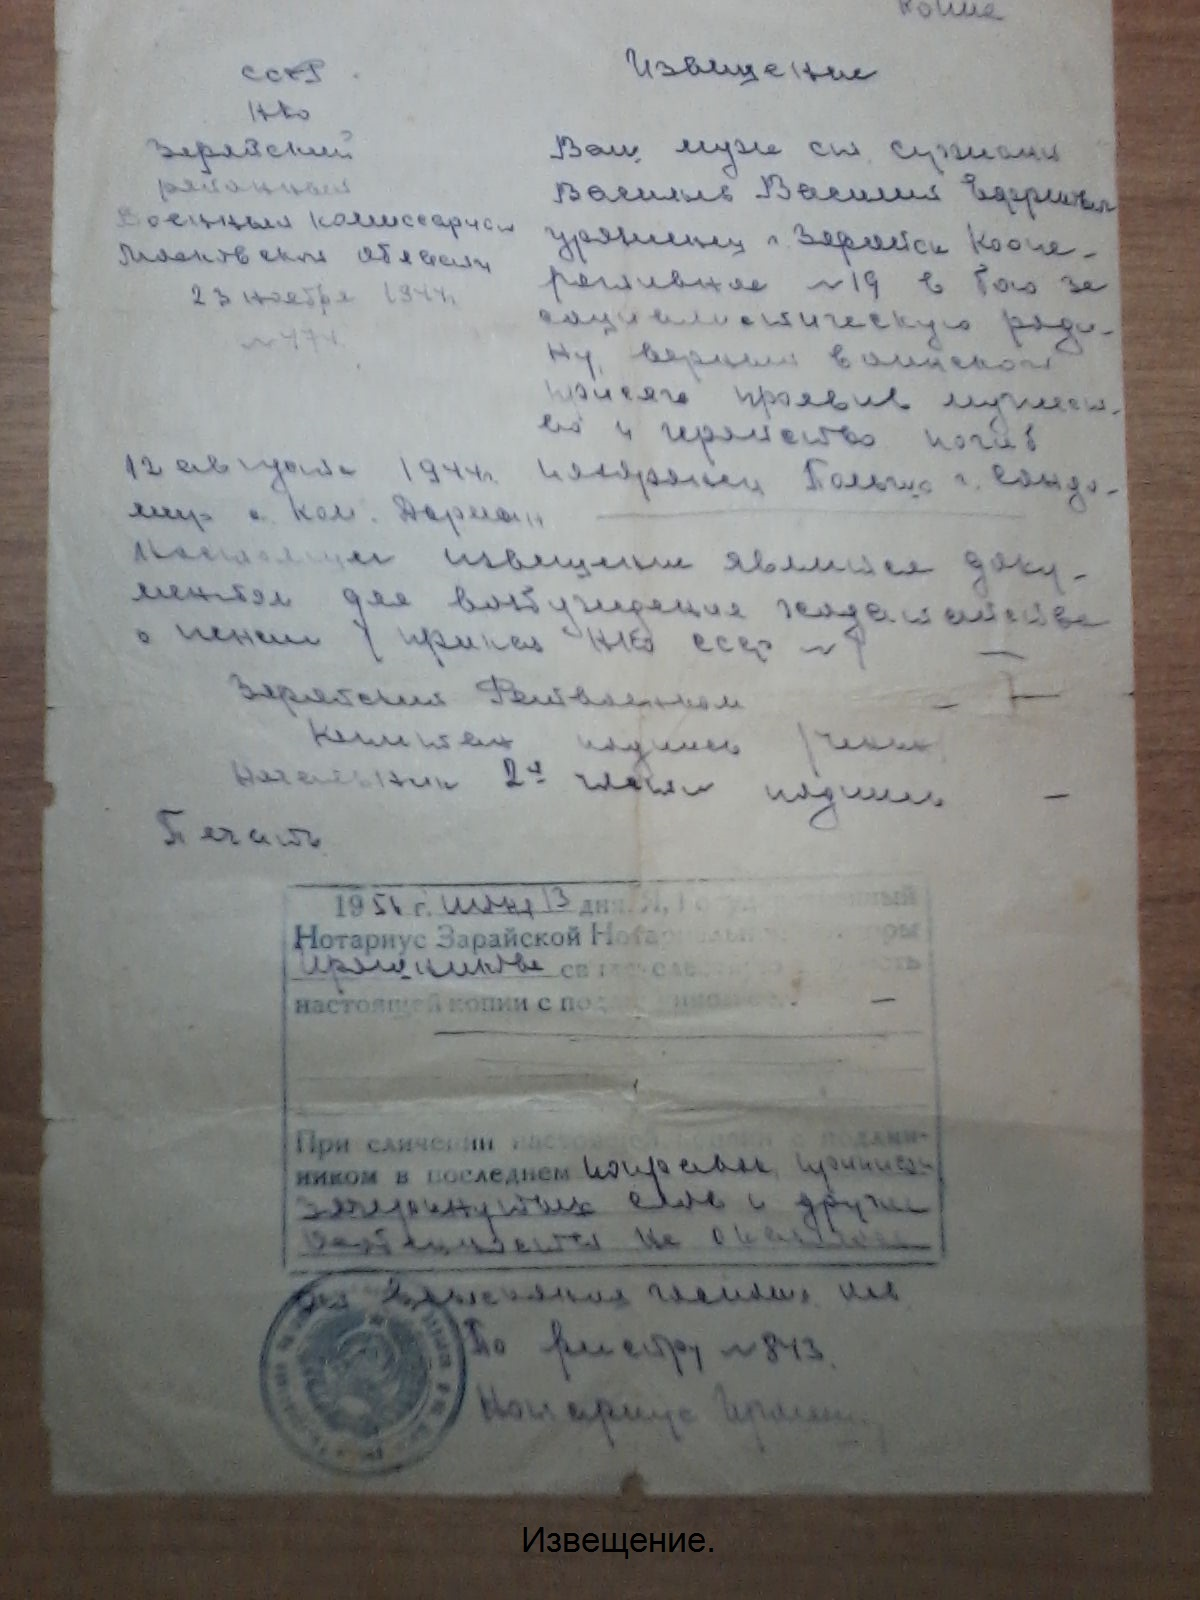 Копия
СССР
НКО
Зарайский
районный
Военный комиссариат
Московской области
23 ноября 1944 г.
Извещение
Ваш муж
Василий
уроженец г. Зарайск Коопе-
ративная №19 в бою за
социалистическую роди-
ну, верный воинской
присяге проявив мужест-
во и геройство погиб
12 августа 1944 г. похоронен Польша г. Сандо-
мир
Настоящее извещение является доку-
ментом для возбуждения ходатайства
о пенсии (приказ НКО СССР №
Зарайский Райвоенком
Капитан подпись
Начальник 2й части подпись
Печать
19 г. 13 дня. Я, Государственный
Нотариус Зарайской Нотариальной конторы
свидетельствую верность
настоящей копии с подлинником.
При сличении настоящей копии с подлин-
ником в последнем поправок, приписок
зачеркнутых слов и других
особенностей не оказалось
По реестру №843.
Нотариус
Извещение.